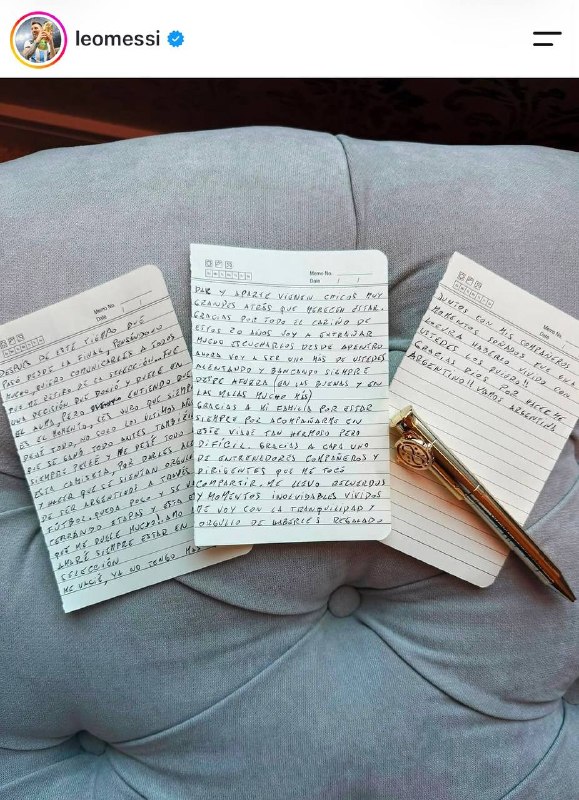 leomessi
Memo No.
Date / /
DESPUES DE ESTE TIEMPO QUE
PASÓ DESDE LA FINAL, PENSANDO
MUCHO, QUIERO COMUNICARLES A TODOS
QUE ME RETIRO DE LA SELECCIÓN. FUE
UNA DECISIÓN QUE DOLIÓ Y DUELE EN
EL ALMA PERO ENTIENDO QUE
ES EL MOMENTO, LES JURO QUE SIEMPRE
DEJÉ TODO, NO SOLO LOS ULTIMOS AÑOS
QUE SE GANÓ TODO ANTES TAMBIÉN
SIEMPRE PELEÉ Y ME DEJÉ TODO
ESTA CAMISETA, POR DARLES
Y HACER QUE SE SIENTAN
DE SER ARGENTINOS A TRAVÉS
FÚTBOL. QUEDA POCO Y SE
CERRANDO ETAPAS Y ESTA
QUE ME DUELE MUCHO! AMO
AMARÉ SIEMPRE ESTAR EN
SELECCIÓN
ME VACIÉ, YA NO TENGO MAS
Memo No.
Date / /
DAR Y APARTE VIENEN CHICOS MUY
GRANDES ATRÁS QUE MERECEN ESTAR.
GRACIAS POR TODO EL CARIÑO DE
ESTOS 20 AÑOS VOY A EXTRAÑAR
MUCHO ESCUCHARLOS DESDE ADENTRO
AHORA VOY A SER UNO MAS DE USTEDES
ALENTANDO Y BANCANDO SIEMPRE
DESDE AFUERA (EN LAS BUENAS Y EN
LAS MALAS MUCHO MÁS)
GRACIAS A MI FAMILIA POR ESTAR
SIEMPRE POR ACOMPAÑARME EN
ESTE VIAJE TAN HERMOSO PERO
DIFÍCIL. GRACIAS A CADA UNO
DE ENTRENADORES COMPAÑEROS Y
DIRIGENTES QUE ME TOCÓ
COMPARTIR. ME LLEVO RECUERDOS
Y MOMENTOS INOLVIDABLES VIVIDOS
ME VOY CON LA TRANQUILIDAD Y
ORGULLO DE HABERLES REGALADO
Memo No.
Date / /
JUNTOS CON MIS COMPAÑEROS
MOMENTOS SOÑADOS FUE UNA
LOCURA HABERLO VIVIDO CON
USTEDES LOS QUIERO!!
GRACIAS DIOS POR HACERME
ARGENTINO!! VAMOS ARGENTINA